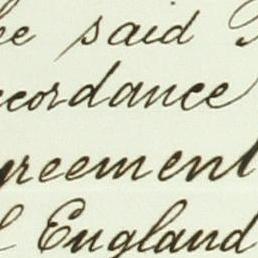 he said
ccordance
greement
England